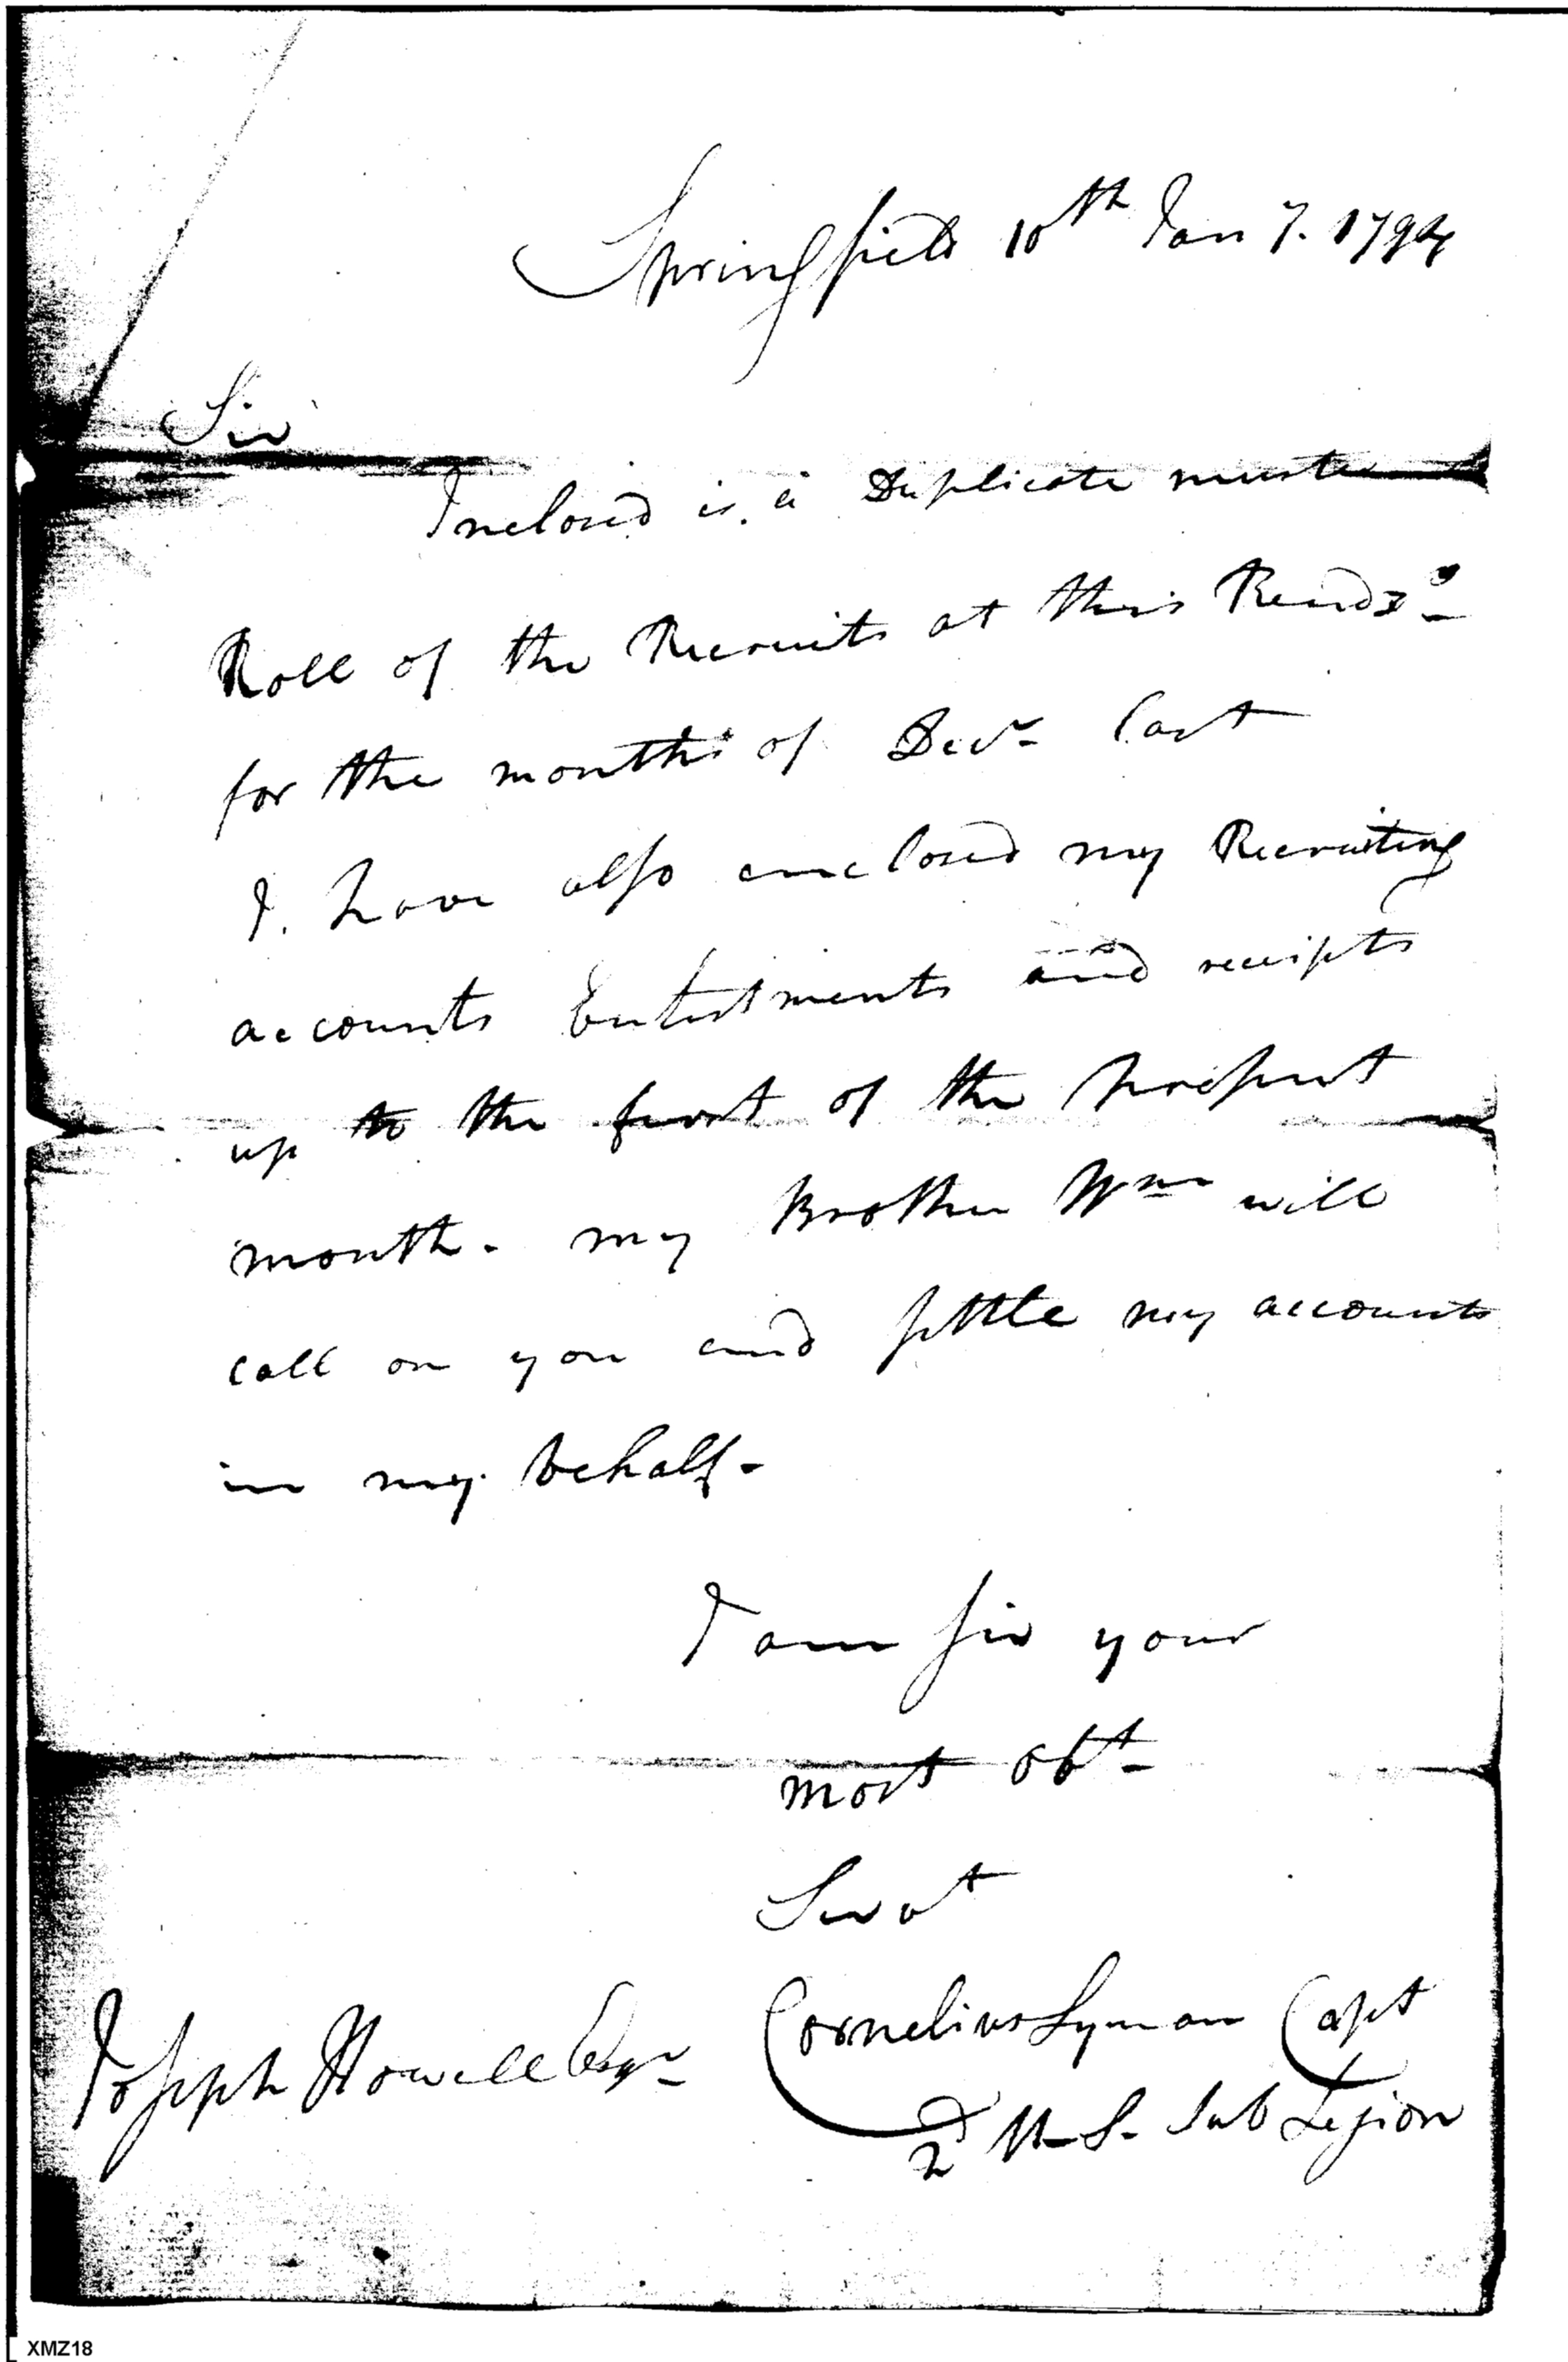 Springfield 10th Jany. 1794
Sir
Inclosed is a Duplicate muster
Roll of the Recruits at this Rendzs
for the months of Decr last
I have also enclosed my Recruiting
accounts Enlistments and receipts
up to the first of the present
month. my Brother Wm will
call on you and settle my accounts
in my behalf-
I am sir your
most obt
Servt
Cornelius Lyman Capt
Joseph Howell Esqr
2d U-S- Sub Legion
XMZ18